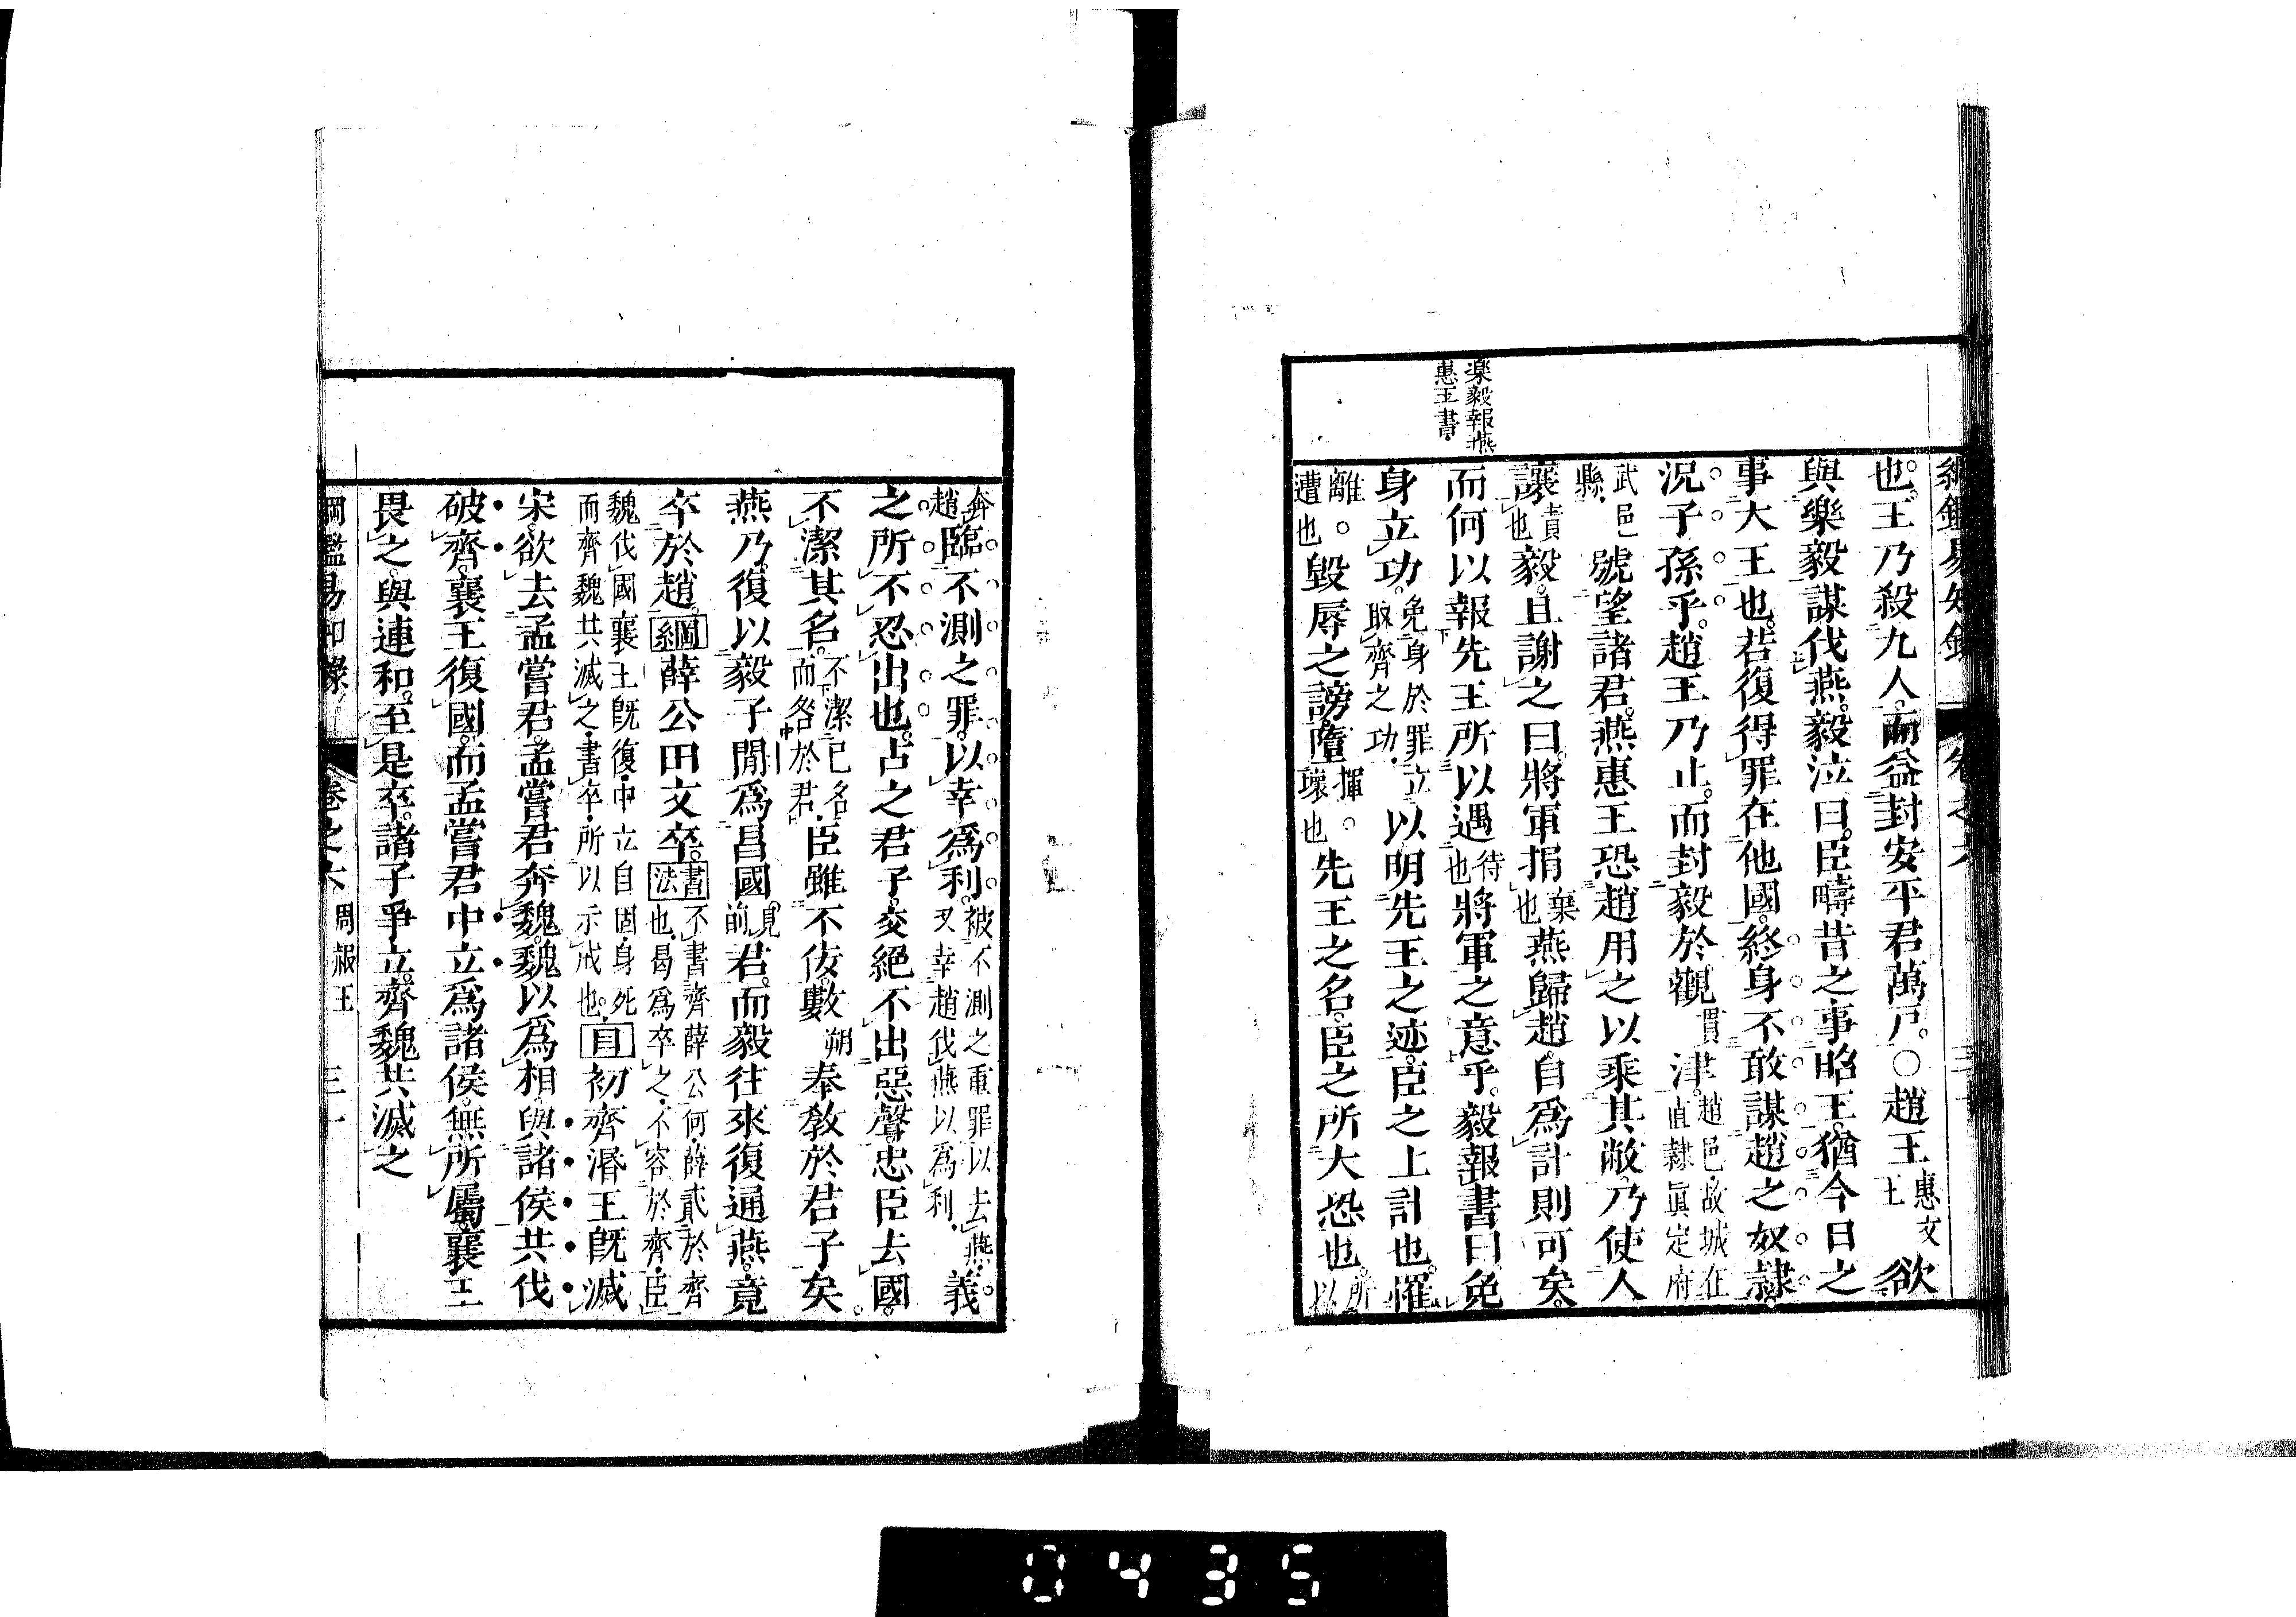 綱鑑易知錄　卷之六
樂毅報燕
惠王書
也。王乃殺九人。而益封安平君萬戶。〇趙王惠文王欲
與樂毅謀伐燕。毅泣曰。臣疇昔之事昭王。猶今日之
事大王也。若復得罪在他國。終身不敢謀趙之奴隸。
況子孫乎。趙王乃止。而封毅於觀貫津。趙邑。故城在直隸眞定府
武邑縣。號望諸君。燕惠王恐趙用之以乘其敝。乃使人
讓責也毅。且謝之曰。將軍捐棄也燕歸趙。自爲計則可矣。
而何以報先王所以遇待也將軍之意乎。毅報書曰。免
身立功。免身於罪立取齊之功。以明先王之迹。臣之上計也。罹
離。遭也毀辱之謗。墮揮。壞也先王之名。臣之所大恐也。所以
奔趙臨不測之罪。以幸爲利。被不測之重罪以去燕。又幸趙伐燕以爲利。義
之所不忍出也。古之君子。交絕不出惡聲。忠臣去國。
不潔其名。不潔己名而咎於君。臣雖不佞。數朔奉教於君子矣。
燕乃復以毅子閒爲昌國見前君。而毅往來復通燕。竟
卒於趙。綱薛公田文卒。書法不書齊薛公何。薛貳於齊也。曷爲卒之。不容於齊。臣
魏伐國襄王旣復。中立自固身死而齊魏共滅之。書卒。所以示戒也。目初齊湣王旣滅
宋。欲去孟嘗君。孟嘗君奔魏。魏以爲相。與諸侯共伐
破齊。襄王復國。而孟嘗君中立爲諸侯。無所屬。襄王
畏之。與連和。至是卒。諸子爭立。齊魏共滅之
綱鑑易知錄　卷之六　周赧王　三十一
0435